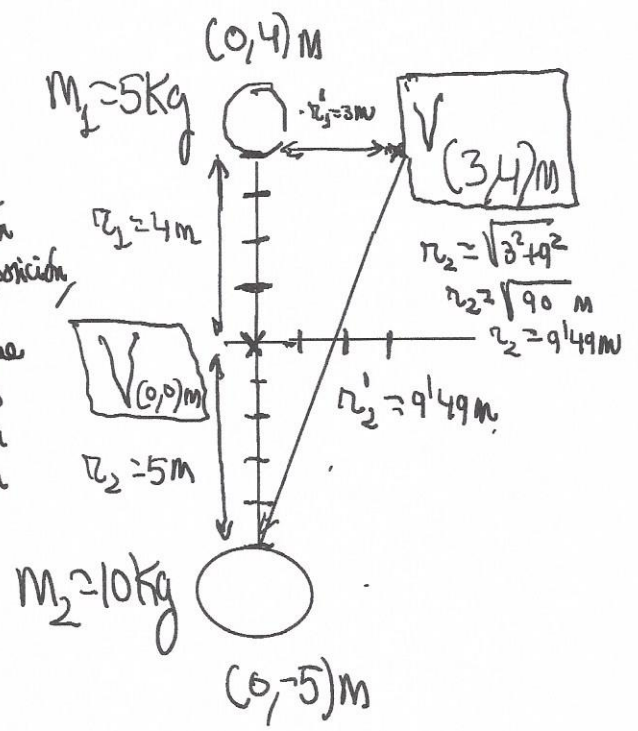 (0,4)m
m₁=5Kg
r₁'=3m
V(3,4)m
r₁=4m
posición,
r₂=√3²+9²
r₂=√90 m
r₂=9'49m
V(0,0)m
r₂'=9'49m
r₂=5m
m₂=10Kg
(0,-5)m